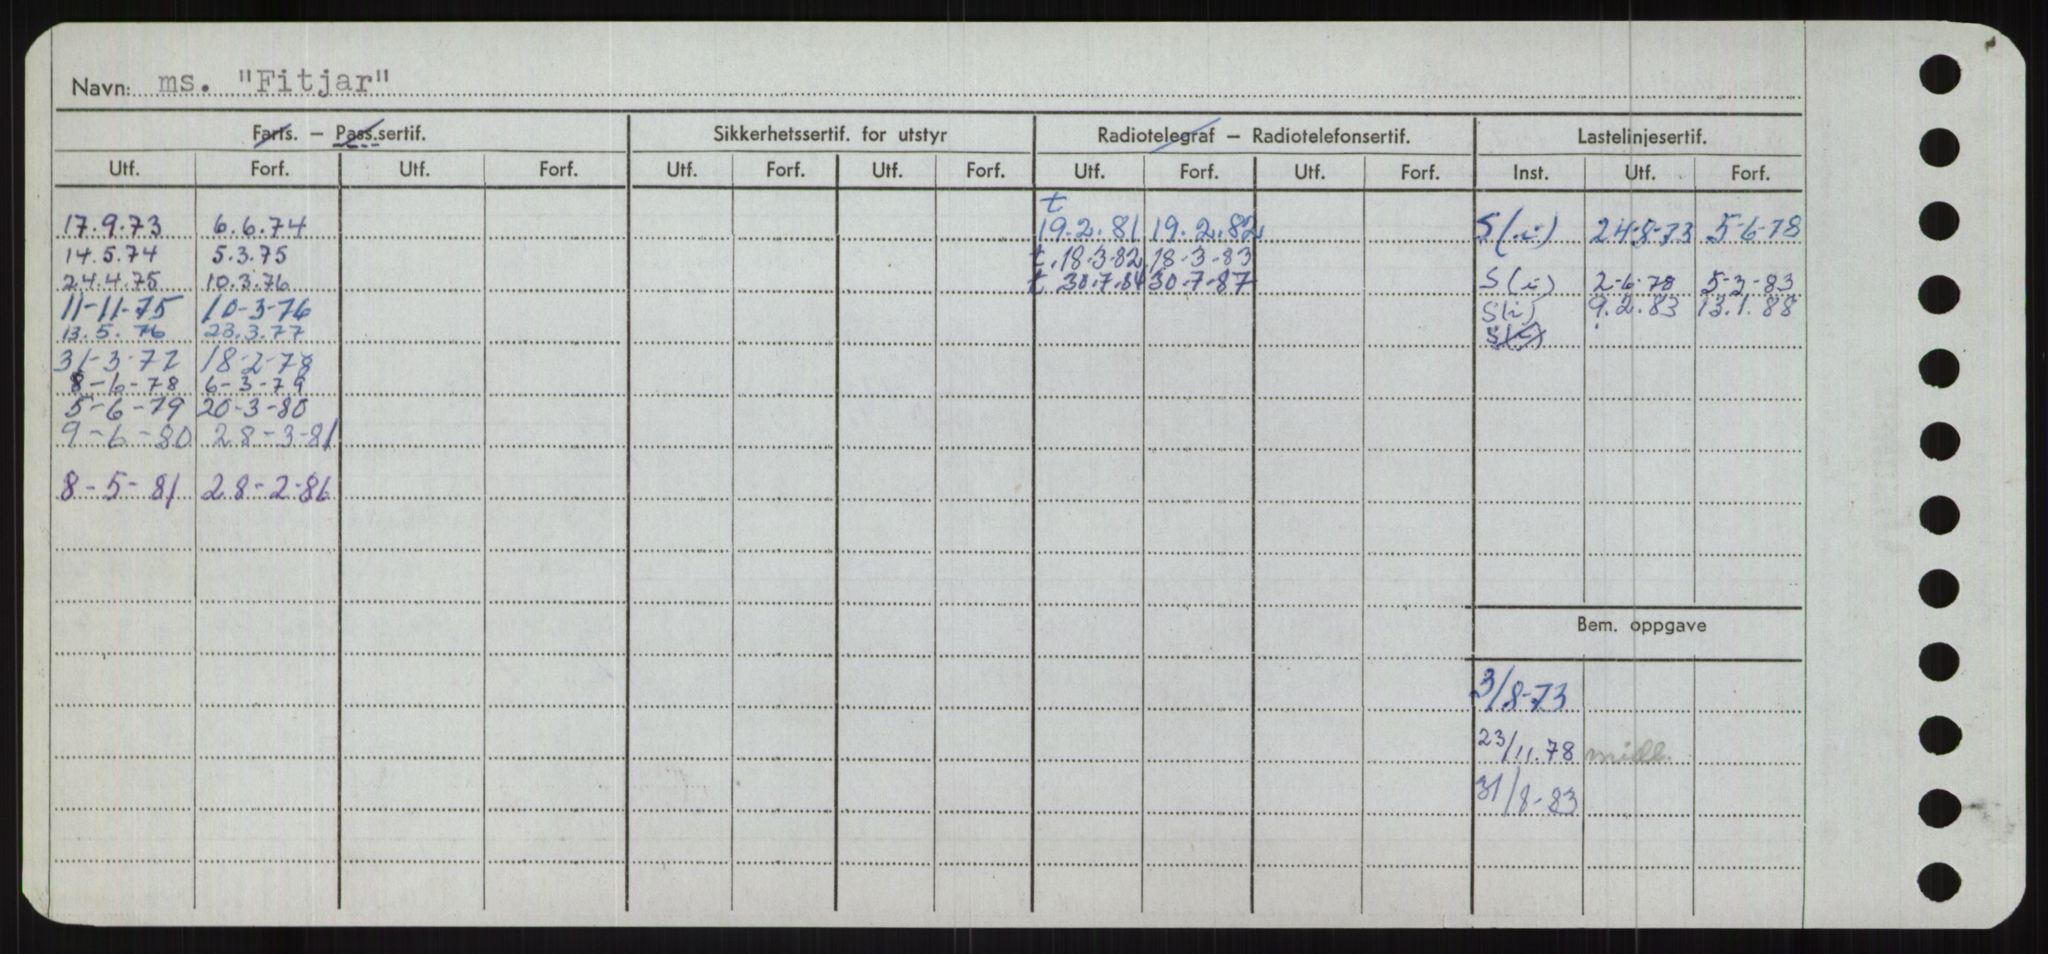 Navn: ms. "Fitjar"
Farts. – Pass.sertif. Sikkerhetssertif. for utstyr Radiotelegraf – Radiotelefonsertif. Lastelinjesertif.
Utf. Forf. Utf. Forf. Utf. Forf. Utf. Forf. Utf. Forf. Utf. Forf. Inst. Utf. Forf.
t
17.9.73 6.6.74 19.2.81 19.2.82 S(i) 24-8-73 5-6-78
14.5.74 5.3.75 t.18-3-82 18-3-83
24.4.75 10.3.76 t 30.7.84 30-7-87 S(i) 2-6-78 5-3-83
11-11-75 10-3-76 S(i) 9.2.83 13.1.88
13.5.76 23.3.77 S(i)
31-3-77 18-2-78
8-6-78 6-3-79
5-6-79 20-3-80
9-6-80 28-3-81
8-5-81 28-2-86
Bem. oppgave
3/8-73
23/11.78 midl.
31/8-83